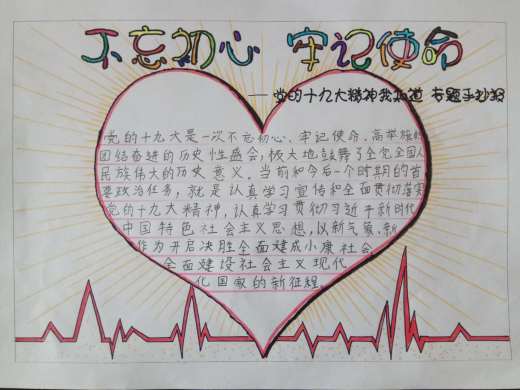 不忘初心 牢记使命
——党的十九大精神我知道 专题手抄报
党的十九大是一次不忘初心、牢记使命、高举旗帜
团结奋进的历史性盛会,极大地鼓舞了全党全国人
民族伟大的历史意义。当前和今后一个时期的首
要政治任务,就是认真学习宣传和全面贯彻落实
党的十九大精神,认真学习贯彻习近平新时代
中国特色社会主义思想,以新气象、新
作为开启决胜全面建成小康社会
全面建设社会主义现代
化国家的新征程。